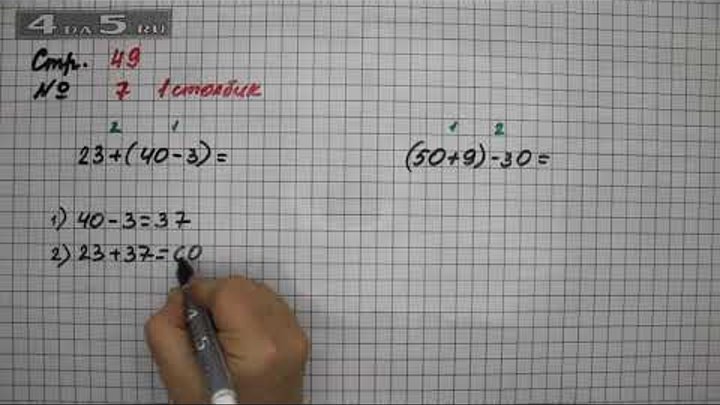 4DA5.RU
Стр. 49
№ 7 1 столбик
2 1
23+(40-3)=
1 2
(50+9)-30=
1) 40-3=37
2) 23+37=60
4 5